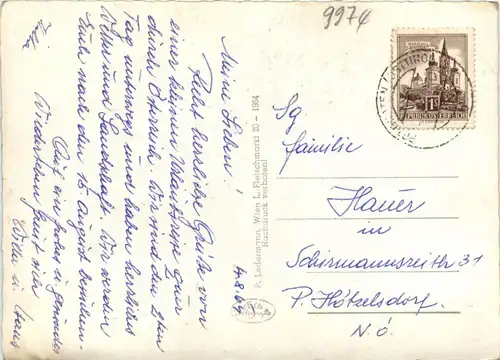 9974
Meine Lieben!
Recht herzliche Grüße von
einer kleinen Urlaubsreise quer
durch Österreich. Wir sind den 2ten
Tag unterwegs und haben herrliches
Wetter und Landschaft. Wir werden
Euch nach den 15. August
Auf ein frohes u. gesundes
Wiedersehen freut sich
4.8.64
P. Ledermann, Wien I., Fleischmarkt 20 - 1964
Nachdruck verboten!
REPUBLIK ÖSTERREICH
Sg
Familie
Hauer
in
Schirmannsreith 31
P. Hötzelsdorf
N.Ö.